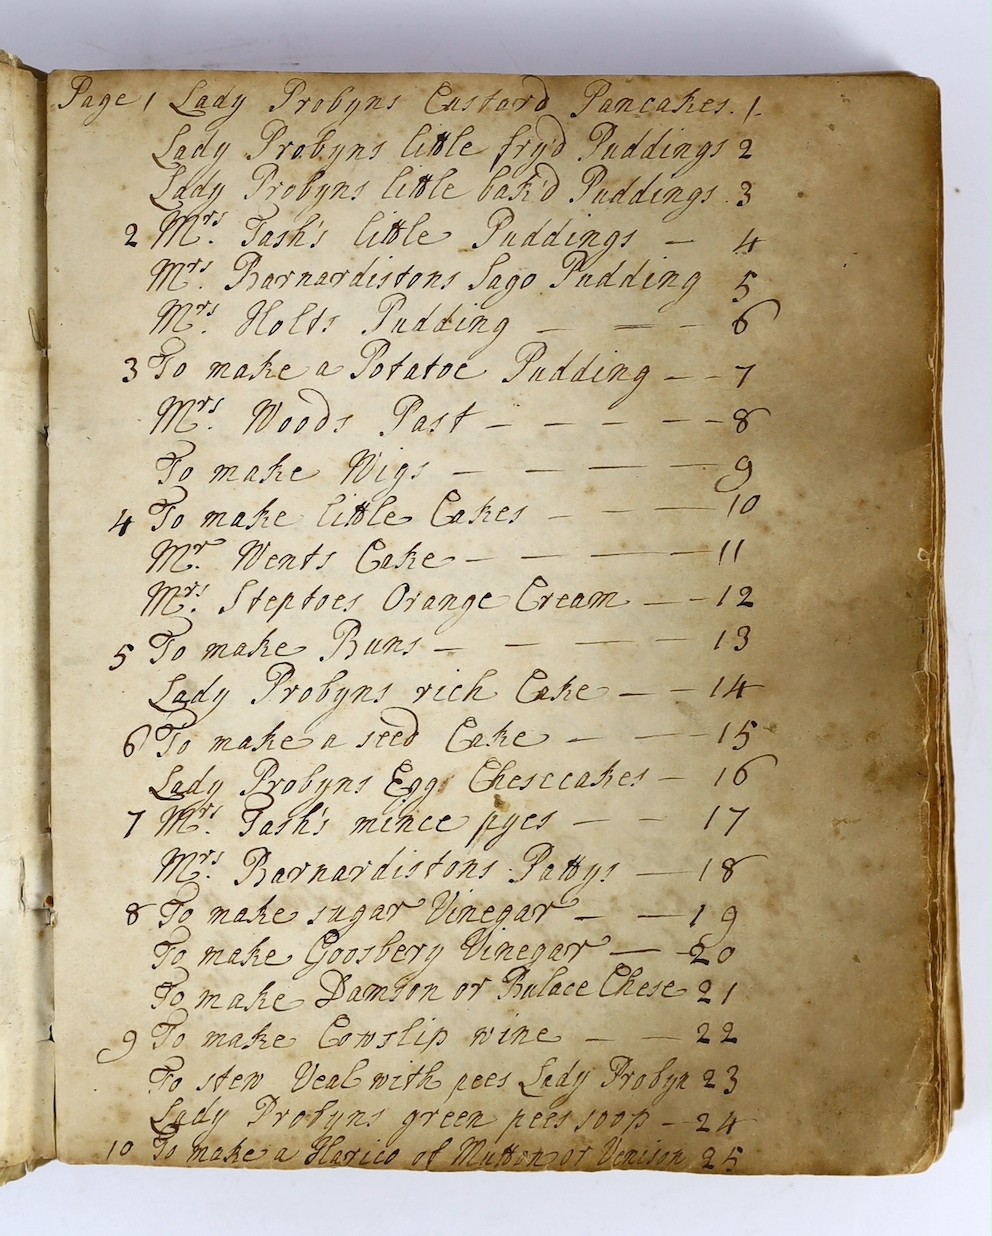 Page 1 Lady Probyns Custard Pancakes. 1.
Lady Probyns little fry'd Puddings 2
Lady Probyns little bak'd Puddings. 3
2 Mrs. Tash's little Puddings — 4
Mrs. Barnardistons Sago Pudding 5
Mrs. Holts Pudding — — — 6
3 To make a Potatoe Pudding — — 7
Mrs. Woods Past — — — — — 8
To make Wigs — — — — 9
4 To make little Cakes — — — — 10
Mr. Wents Cake — — — — — 11
Mrs. Steptoes Orange Cream — — 12
5 To make Buns — — — — 13
Lady Probyns rich Cake — — 14
6 To make a seed Cake — — — 15
Lady Probyns Egg Chesecakes — 16
7 Mrs. Tash's mince pyes — — — 17
Mrs. Barnardistons Pattys — 18
8 To make sugar Vinegar — — 19
To make Goosbery Vinegar — — 20
To make Damson or Bulace Chese 21
9 To make Cowslip wine — — 22
To stew Veal with pees Lady Probyn 23
Lady Probyns green pees soop — 24
10 To make a Harico of Mutton or Venison 25